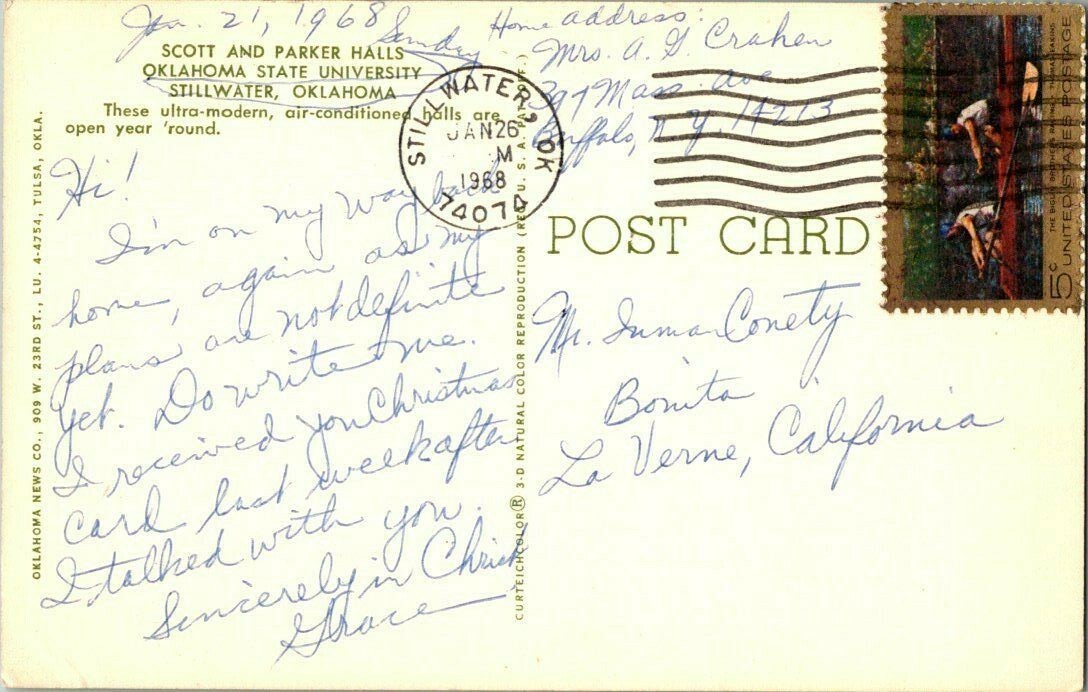 Jan. 21, 1968 Sunday
SCOTT AND PARKER HALLS
OKLAHOMA STATE UNIVERSITY
STILLWATER, OKLAHOMA
These ultra-modern, air-conditioned halls are
open year 'round.
Hi!
I'm on my way back
home, again as my
plans are not definite
yet. Do write me.
I received your Christmas
card last week after
I talked with you.
Sincerely in Christ
Grace
OKLAHOMA NEWS CO., 909 W. 23RD ST., LU. 4-4754, TULSA, OKLA.
CURTEICHCOLOR® 3-D NATURAL COLOR REPRODUCTION U. S. A.
Home address:
Mrs. A. G. Crahen
397 Mass. Ave
Buffalo, N. Y. 14213
STILLWATER, OK
JAN 26
M
1968
74074
POST CARD
UNITED STATES POSTAGE 5c
Mr. Inman Conety
Bonita
La Verne, California